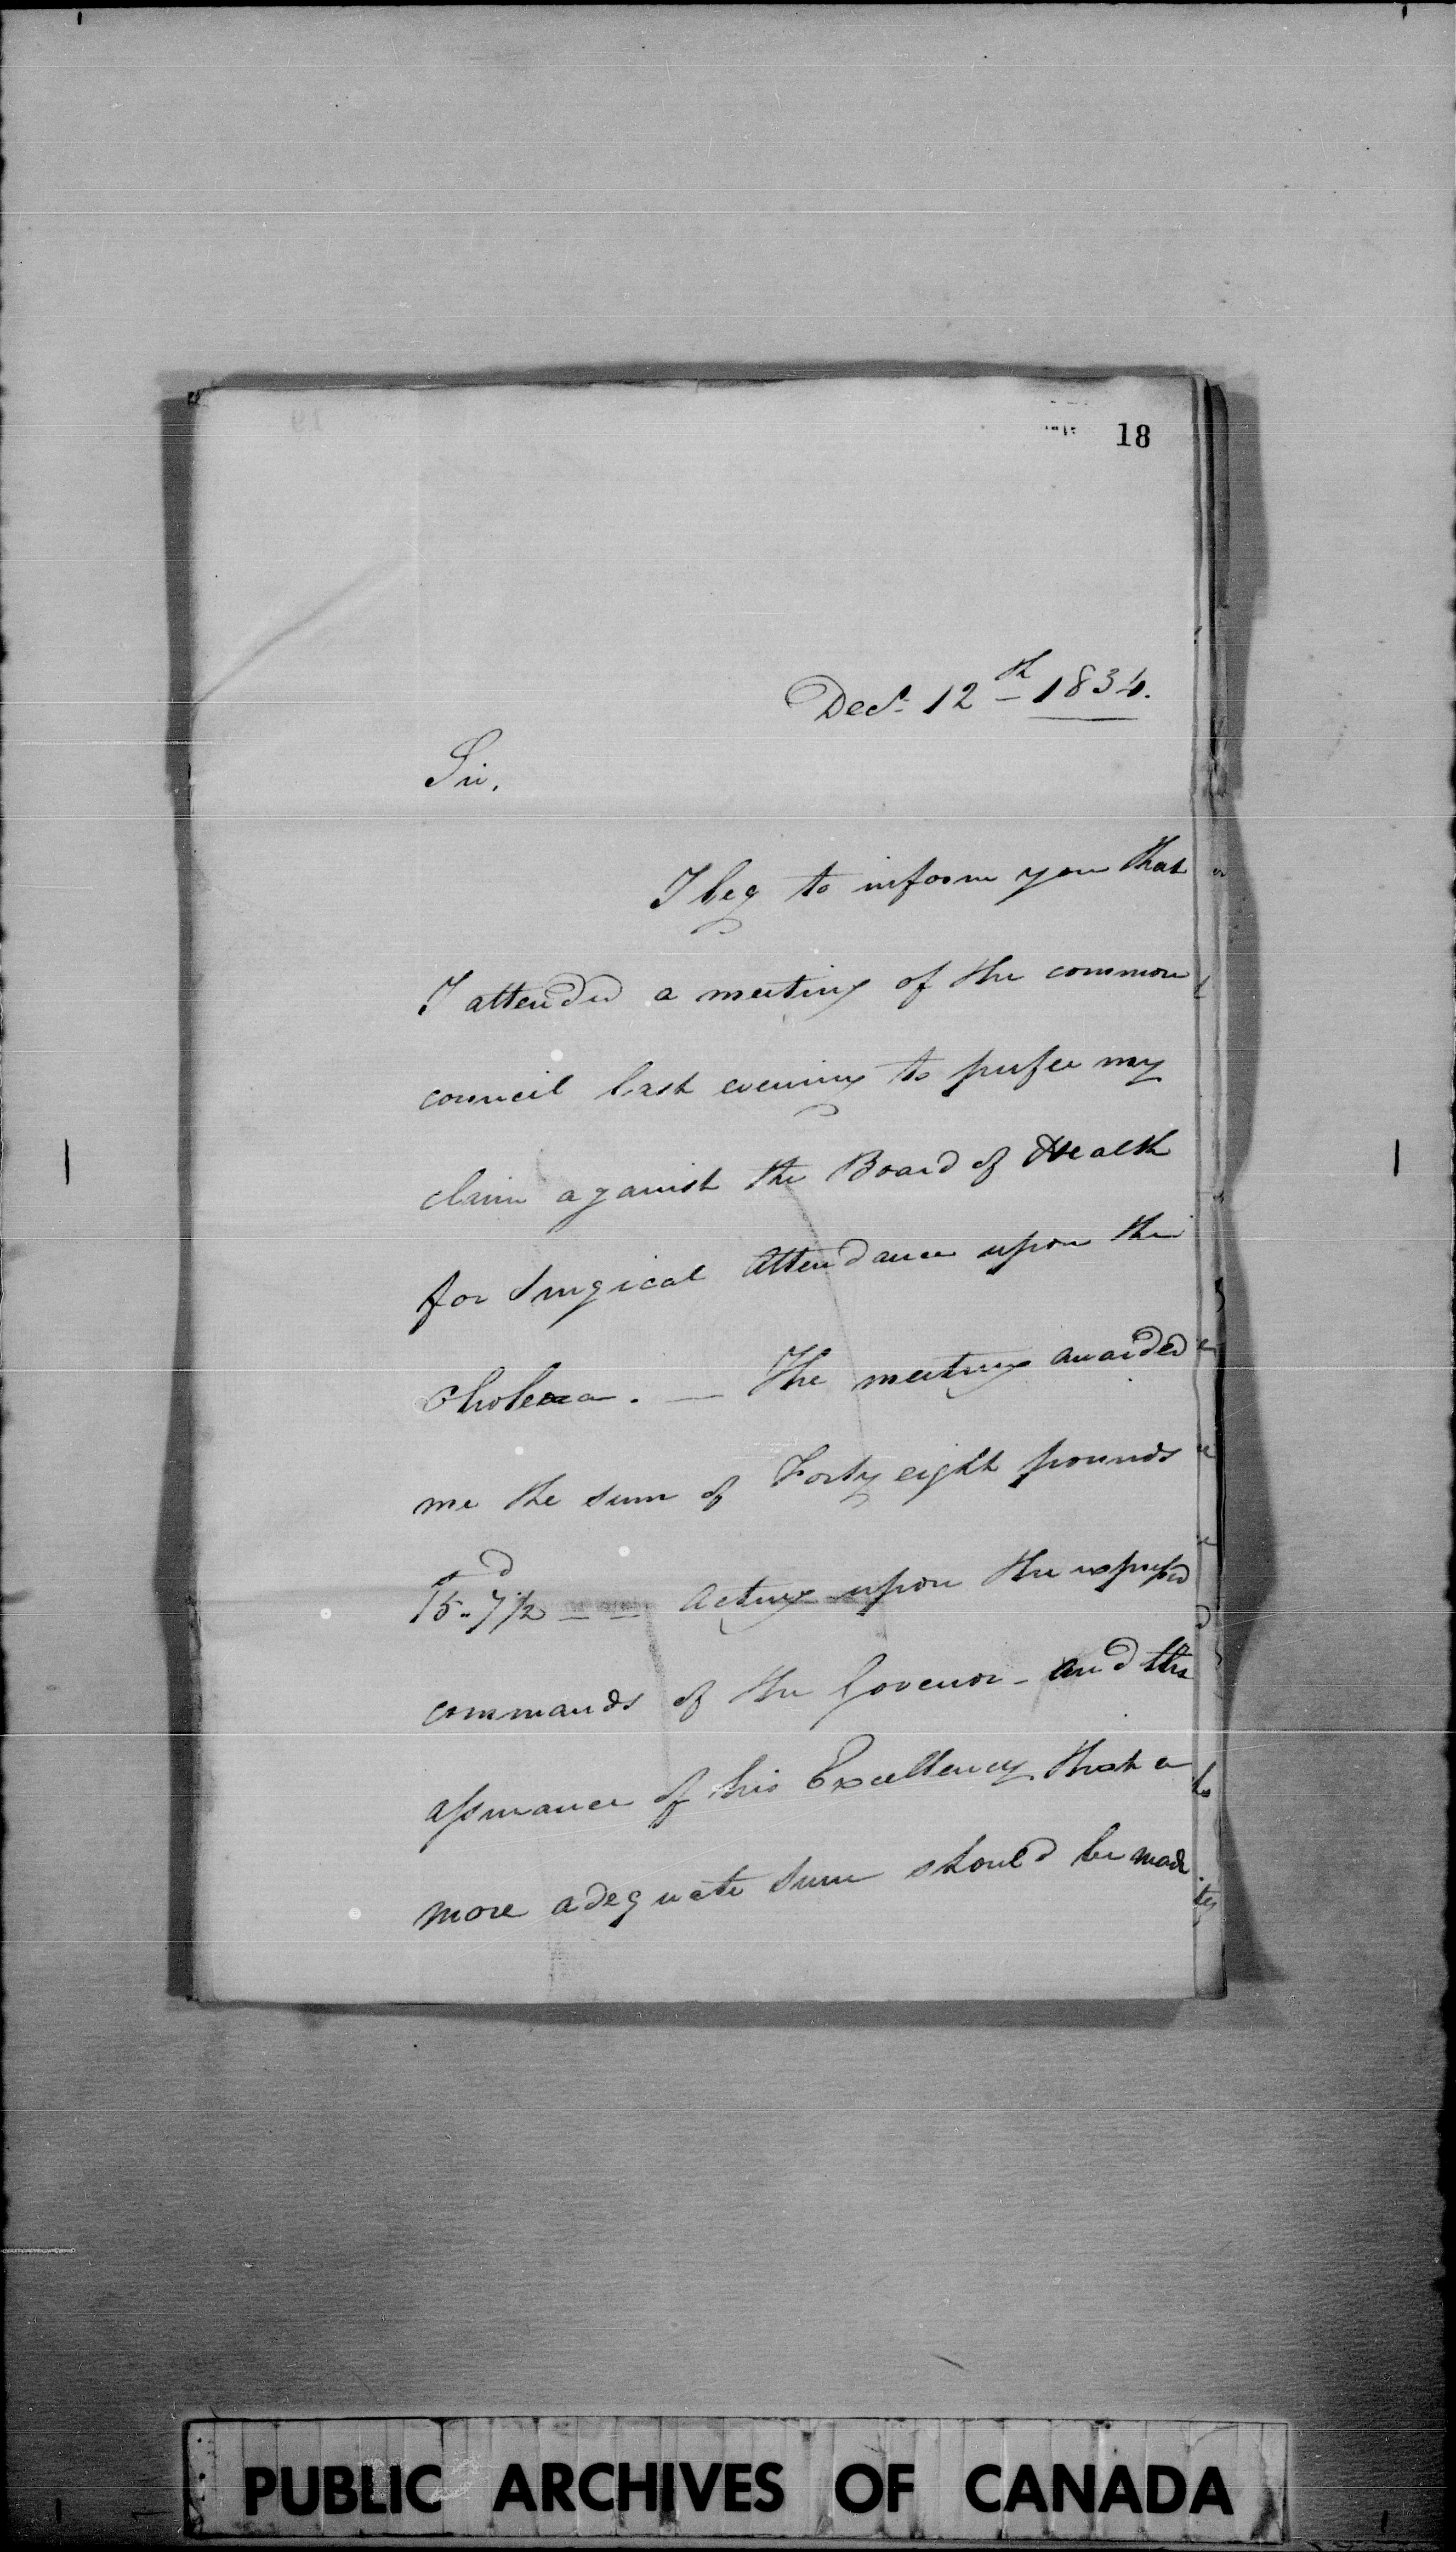 18
Decr. 12th 1834.
Sir,
I beg to inform you that
I attended a meeting of the common
council last evening to prefer my
claim against the Board of Health
for Surgical Attendance upon the
Cholera. — The meeting awarded
me the sum of Forty eight pounds
15s.. 7d 1/2 — — Acting upon the expressed
commands of the Governor - and the
assurance of his Excellency that a
more adequate sum should be made
PUBLIC ARCHIVES OF CANADA